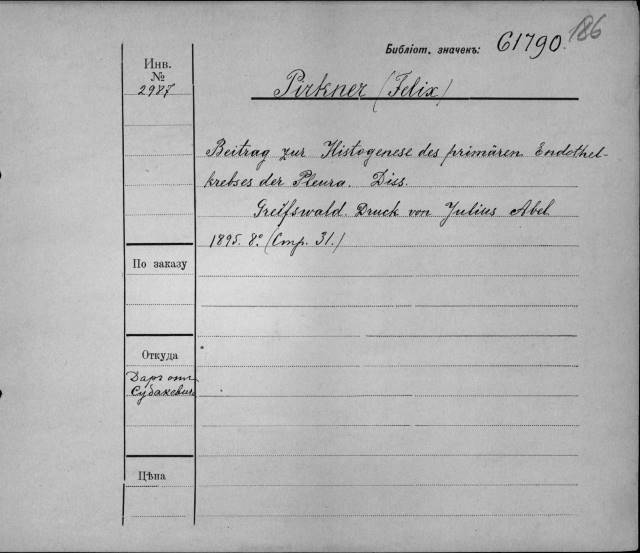 186
Библіот. значекъ: 61790.
Инв.
№
2987
Pirkner (Felix)
Beitrag zur Histogenese des primären Endothel-
krebses der Pleura. Diss.
Greifswald. Druck von Julius Abel.
1895. 8° (Стр. 31.)
По заказу
Откуда
Даръ отъ
Цѣна